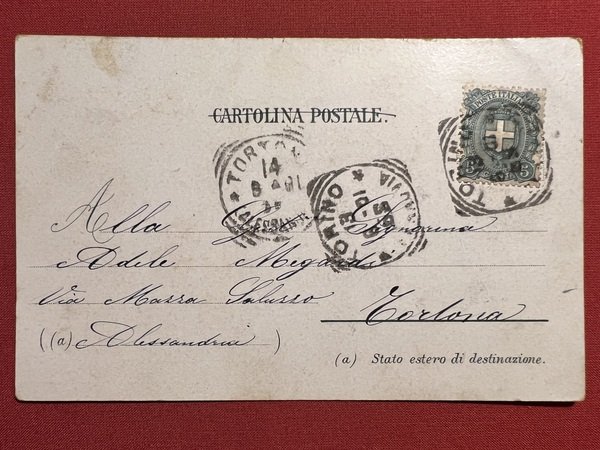 CARTOLINA POSTALE.
POSTE ITALIANE
5 5
TORTONA
14
ALESSANDRIA
TORINO
13
TORINO
Alla Gma Signorina
Adele Megardi
Via Mazza Saluzzo
Tortona
((a) Alessandria)
(a) Stato estero di destinazione.